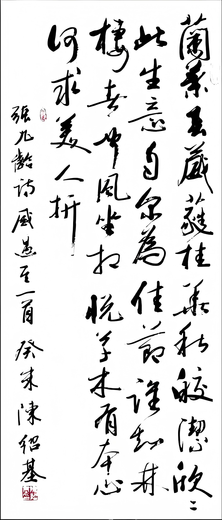 蘭葉春葳蕤桂華秋皎潔欣〻
此生意自尔為佳節誰知林
棲者聞風坐相悅草木有本心
何求美人折
張九齡詩感遇其一首癸未陳紹基